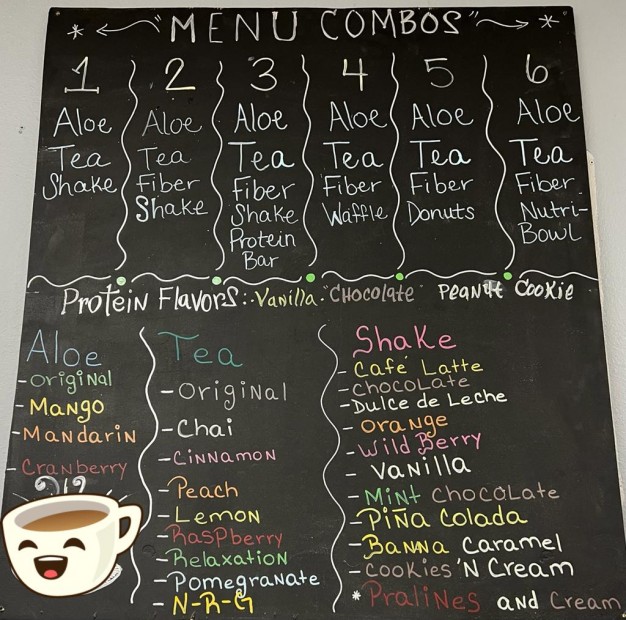 * ← "MENU COMBOS" → *
1
Aloe
Tea
Shake
2
Aloe
Tea
Fiber
Shake
3
Aloe
Tea
Fiber
Shake
Protein
Bar
4
Aloe
Tea
Fiber
Waffle
5
Aloe
Tea
Fiber
Donuts
6
Aloe
Tea
Fiber
Nutri-
Bowl
Protein Flavors: Vanilla "Chocolate" Peanut Cookie
Aloe
- Original
- Mango
- Mandarin
- Cranberry
Tea
- Original
- Chai
- Cinnamon
- Peach
- Lemon
- Raspberry
- Relaxation
- Pomegranate
- N-R-G
Shake
- Café Latte
- Chocolate
- Dulce de Leche
- Orange
- Wild Berry
- Vanilla
- Mint Chocolate
- Piña Colada
- Banna Caramel
- Cookies 'N Cream
* Pralines and Cream